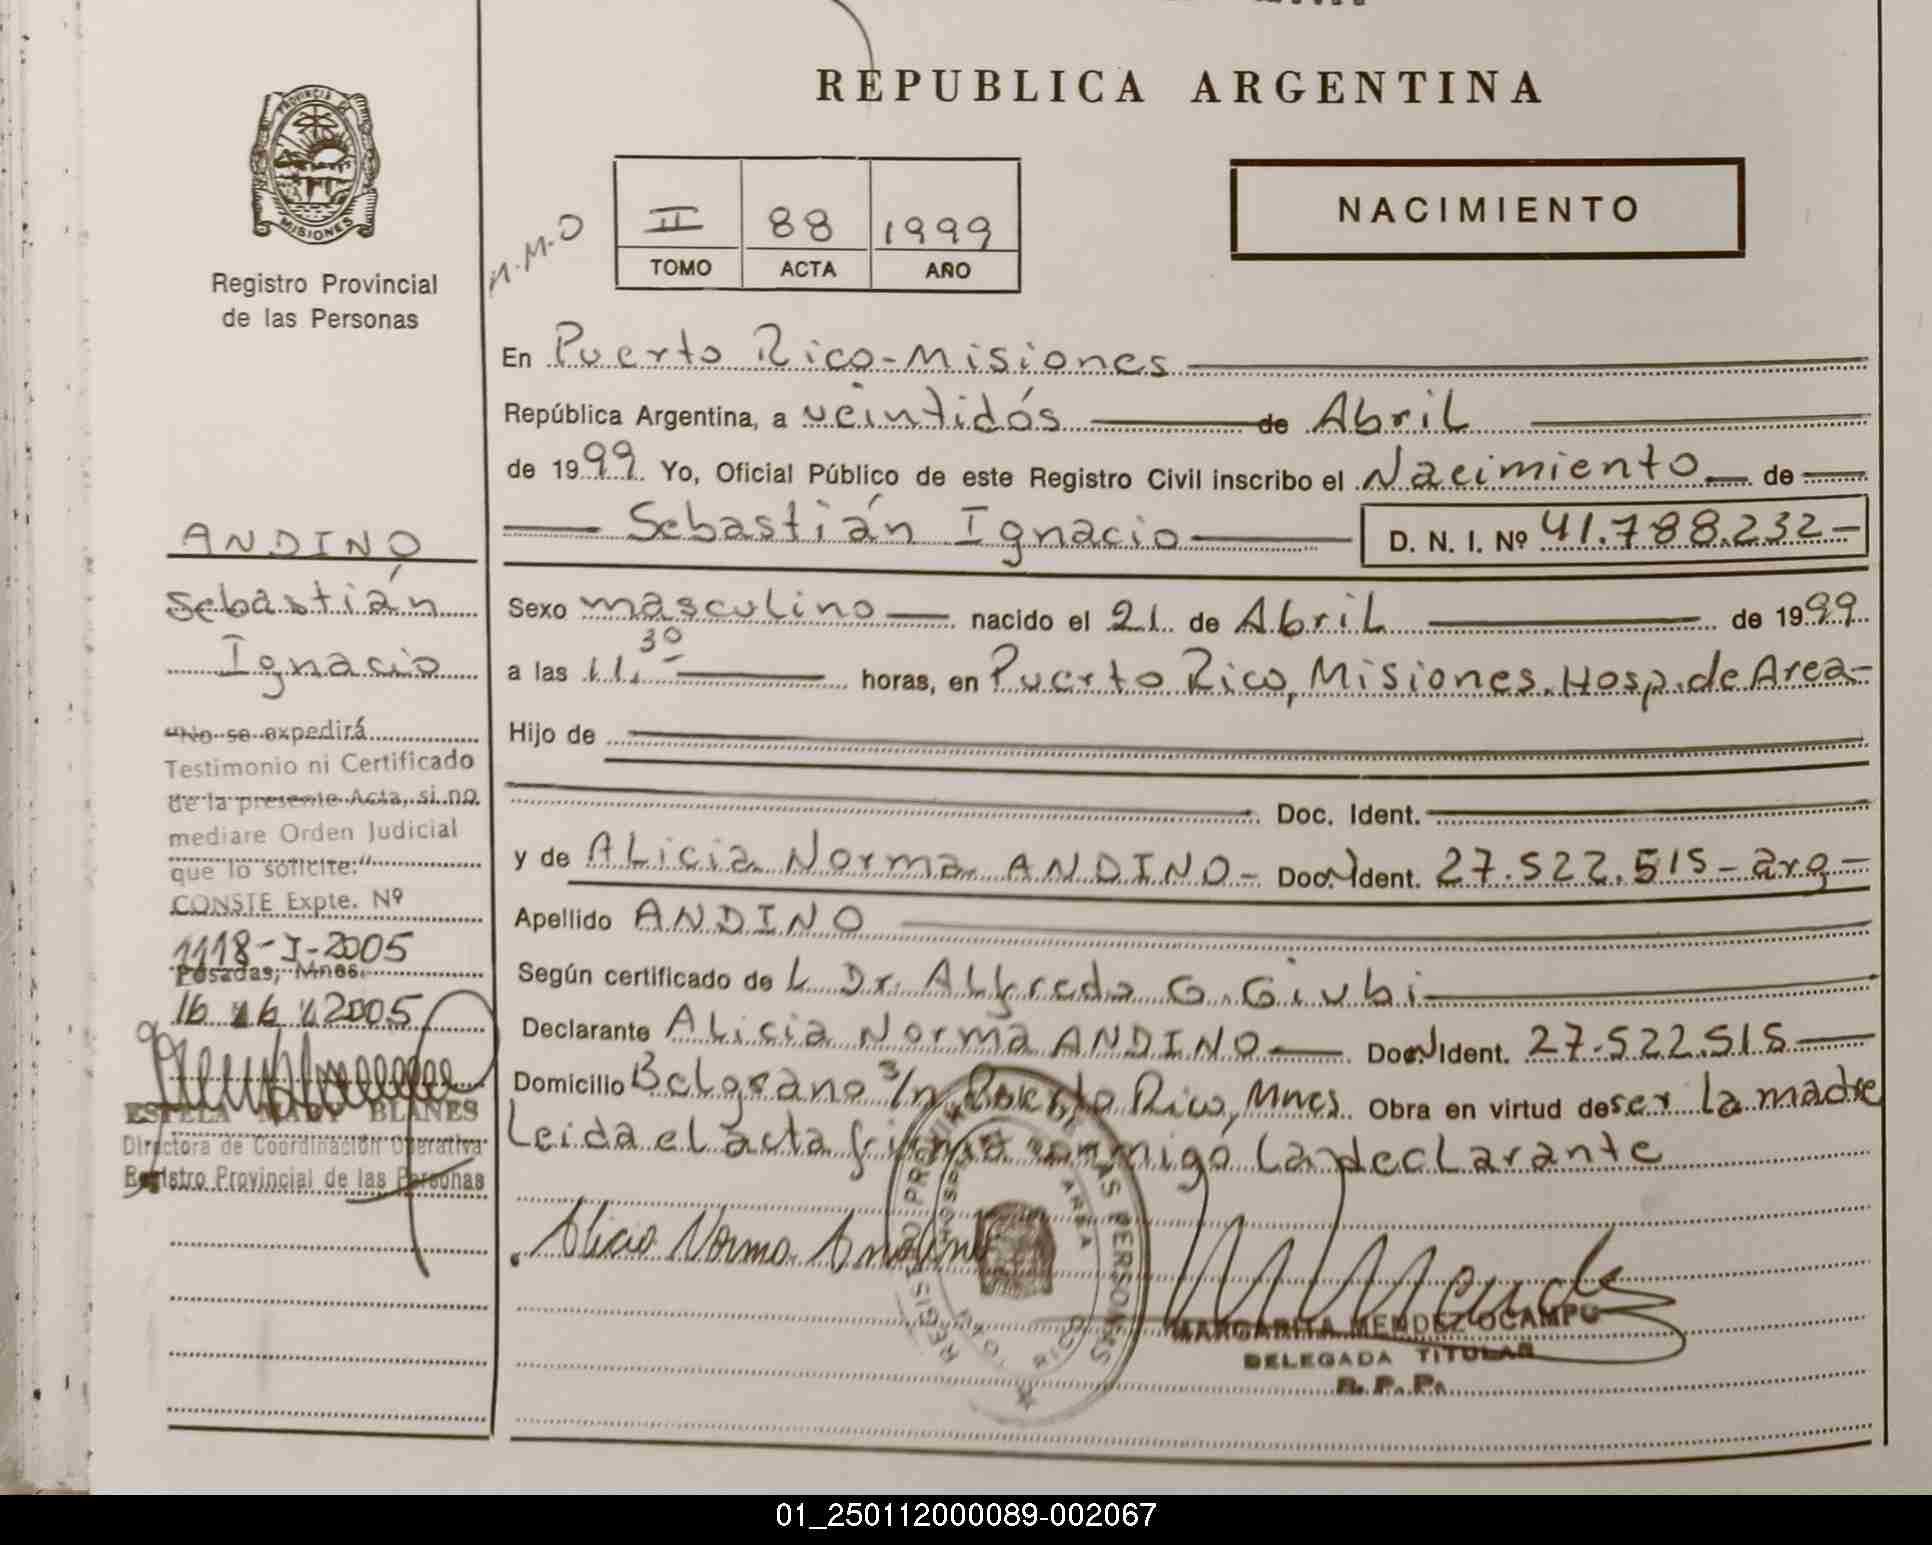 REPUBLICA ARGENTINA
PROVINCIA DE
MISIONES
Registro Provincial
de las Personas
N.M.O
II 88 1999
TOMO ACTA AÑO
NACIMIENTO
En Puerto Rico-Misiones
República Argentina, a veintidós de Abril
de 1999 Yo, Oficial Público de este Registro Civil inscribo el Nacimiento de
Sebastián Ignacio D. N. I. Nº 41.788.232-
Sexo masculino nacido el 21 de Abril de 1999
a las 11.30 horas, en Puerto Rico, Misiones. Hosp. de Area-
Hijo de
Doc. Ident.
y de Alicia Norma ANDINO- Doc. Ident. 27.522.515-arg-
Apellido ANDINO
Según certificado de L Dr. Alfredo G. Giubi
Declarante Alicia Norma ANDINO Doc. Ident. 27.522.515
Domicilio Belgrano s/n Puerto Rico, Mnes. Obra en virtud de ser la madre
Leida el acta firma conmigo la declarante
Alicia Norma Andino
REGISTRO PROVINCIAL DE LAS PERSONAS
HOSPITAL AREA
PTO. RICO
MARGARITA MENDEZ OCAMPO
DELEGADA TITULAR
R. P. P.
ANDINO
Sebastián
Ignacio
"No se expedirá
Testimonio ni Certificado
de la presente Acta, si no
mediare Orden Judicial
que lo solicite."
CONSTE Expte. Nº
1118-I-2005
Posadas, Mnes.
16 / 6 / 2005
ESTELA MARY BLANES
Directora de Coordinación Operativa
Registro Provincial de las Personas
01_250112000089-002067